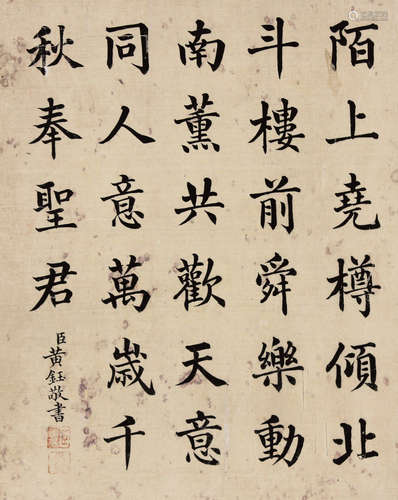 陌上堯樽傾北
斗樓前舜樂動
南薰共歡天意
同人意萬歲千
秋奉聖君
臣黃鈺敬書